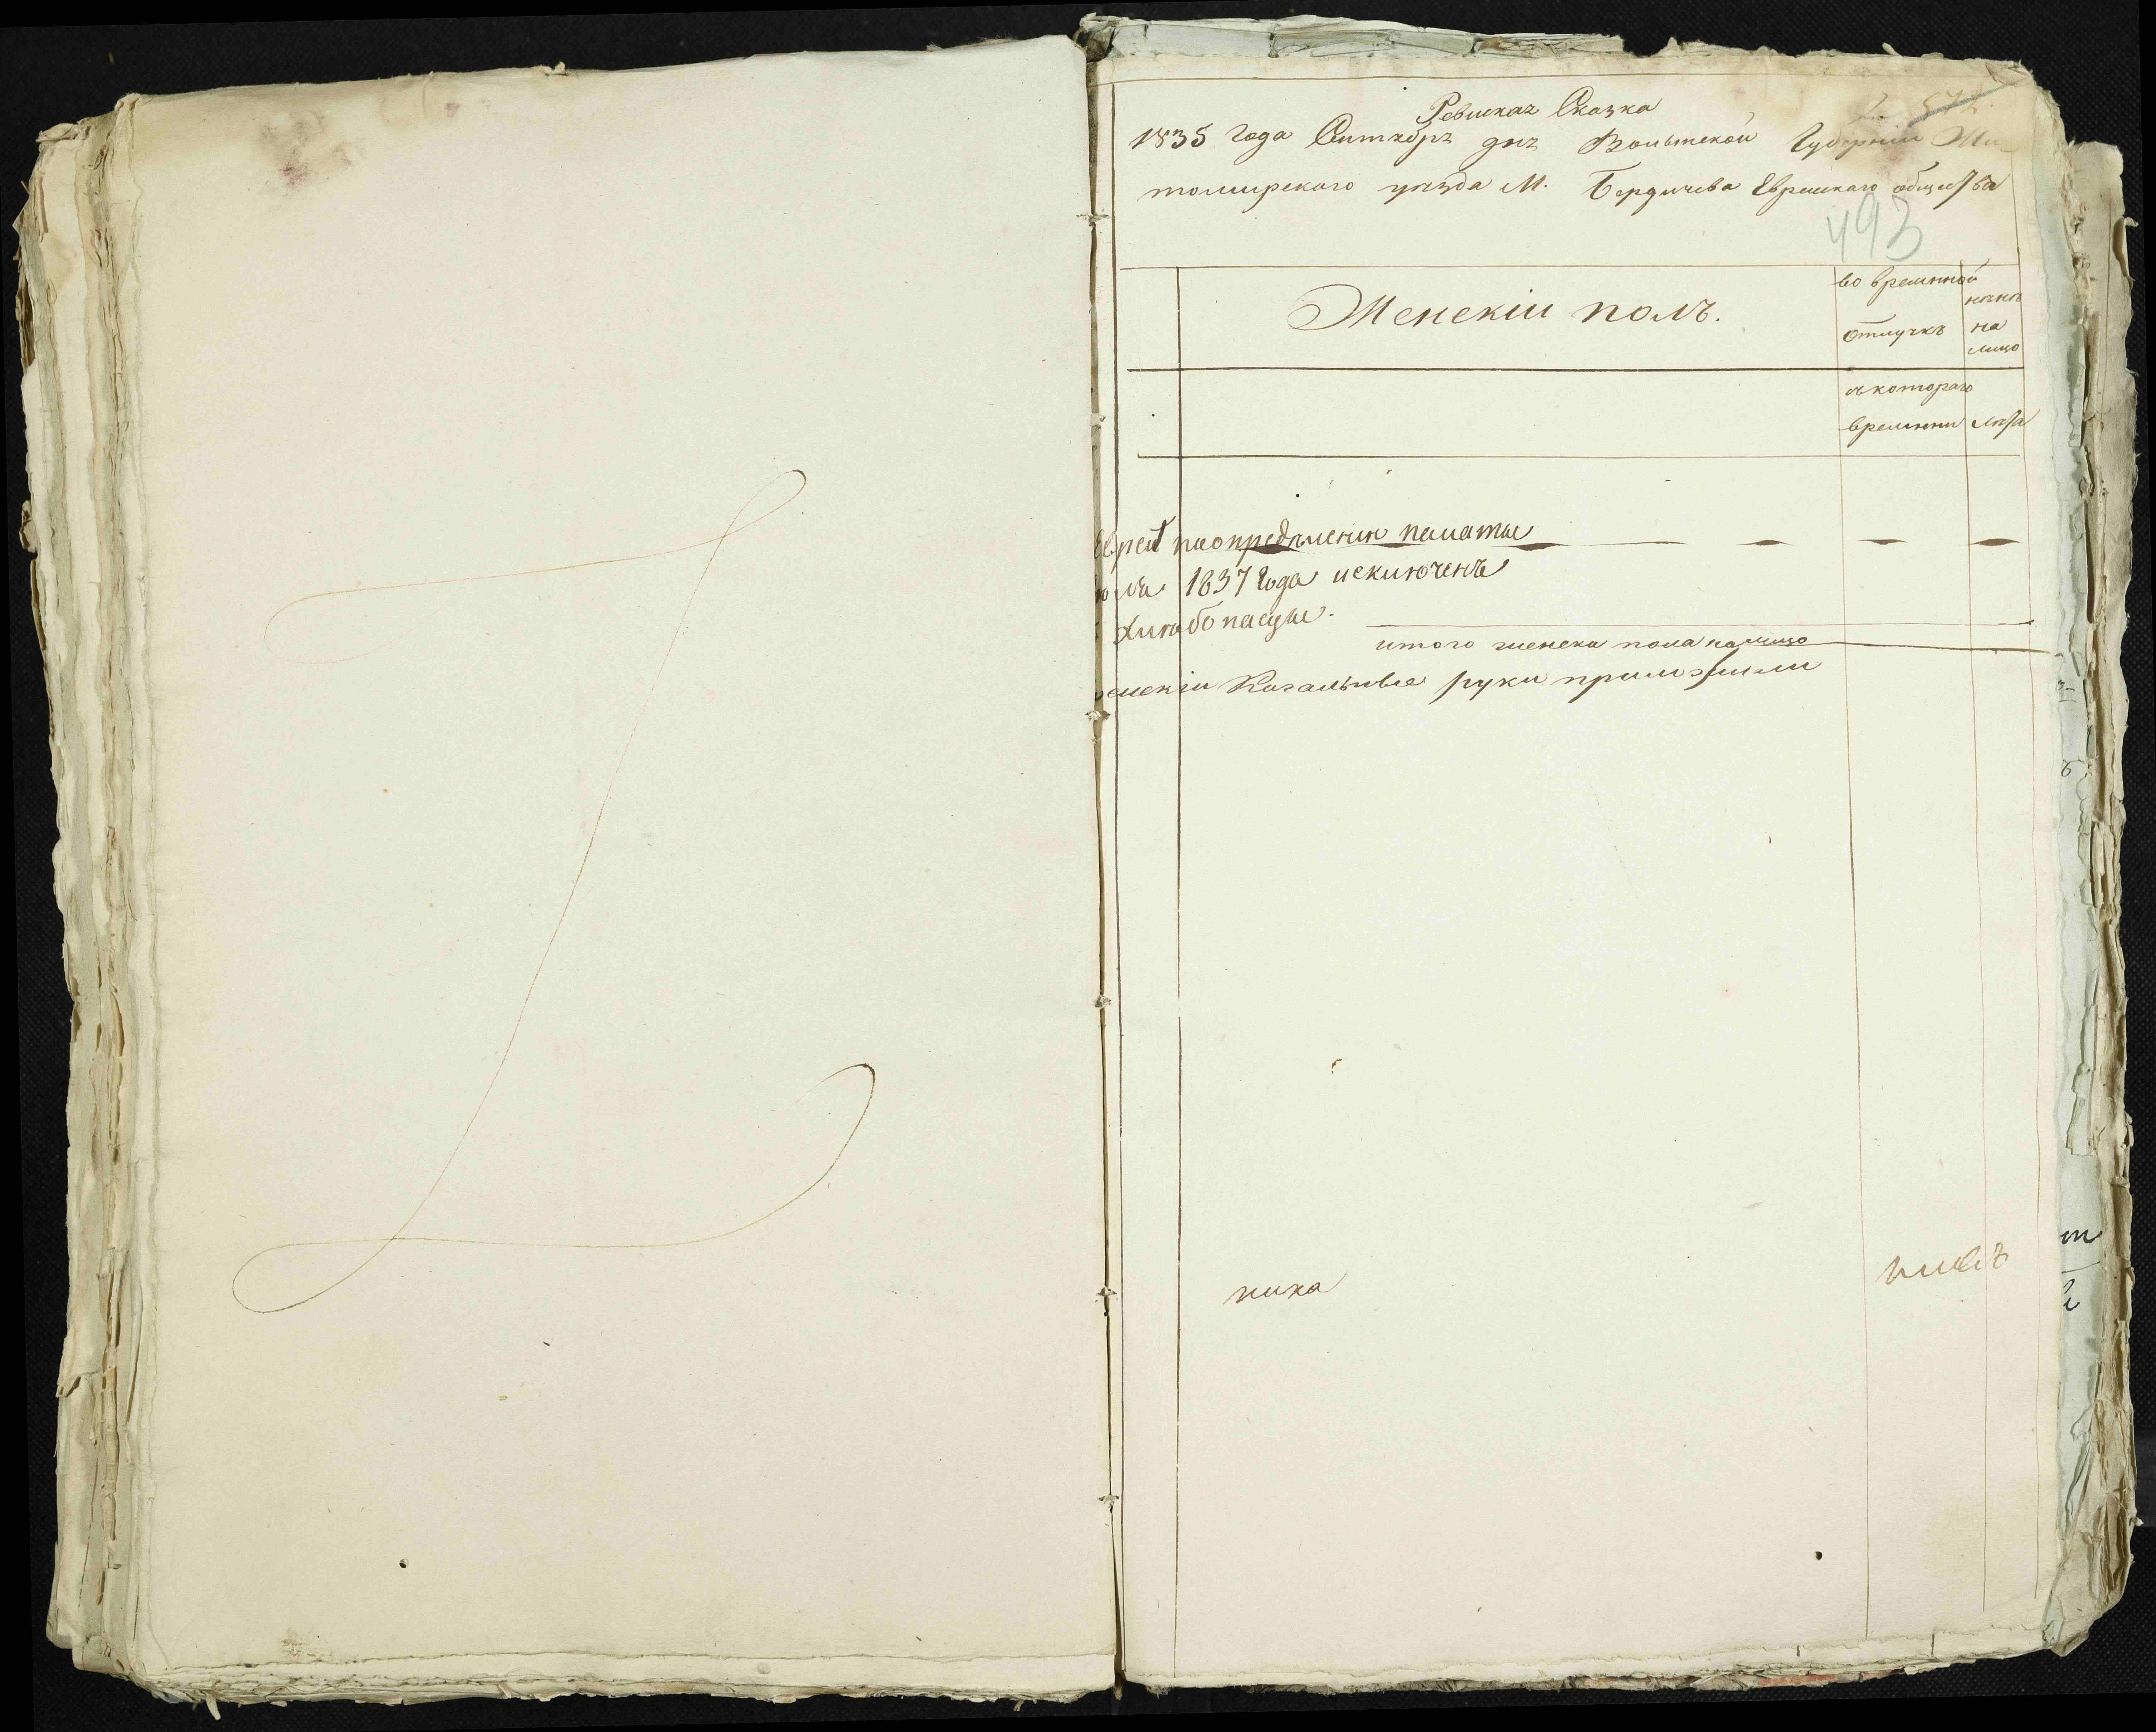 Ревиская Сказка
1835 года Сентября дня Волынской Губернии Жи-
томирского уезда М. Бердичева Еврейскаго общества
493
Женскіи полъ.
во временной
отлучкѣ
нынѣ
на
лицо
съ котораго
времини
лѣта
Еврей по определению палаты
1837 года исключенъ
хлебопасцы.
итого женска пола налицо
Кагальные руки приложили
ника